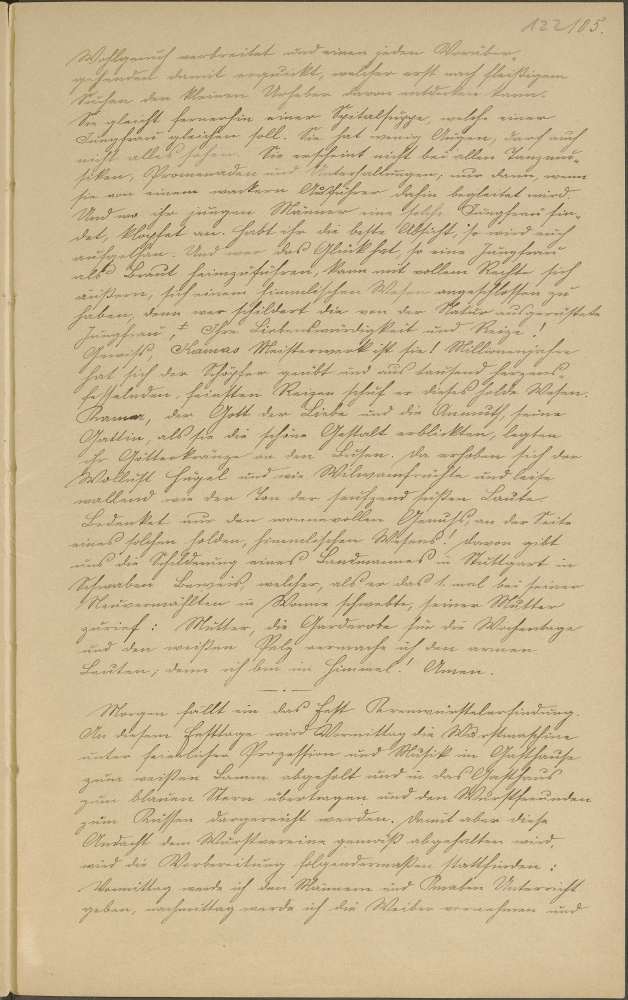 122/85.
Wohlgeruch verbreitet und einen jeden Vorüber-
gehenden damit erquickt, welcher erst nach fleißigem
Suchen den kleinen Urheber davon entdecken kann.
Sie gleicht fernerhin einer Spitalsuppe, welche einer
Jungfrau gleichen soll. Sie hat wenig Augen, darf auch
nicht alles sehen. Sie erscheint nicht bei allen Tanzmu-
siken, Promenaden und Unterhaltungen; nur dann, wenn
sie von einem wackern Ausführer dahin begleitet wird.
Und wo ihr jungen Männer eine solche Jungfrau fin-
det, klopfet an. Habt ihr die beste Absicht, so wird euch
aufgethan. Und wer das Glück hat so eine Jungfrau
als Braut heimzuführen, kann mit vollem Rechte sich
äußern, sich einem himmlischen Wesen angeschlossen zu
haben, denn wer schildert die von der Natur ausgerüstete
Jungfrau, Ihre Liebenswürdigkeit und Reize!
Gewiss, Kamas Meisterwerk ist sie! Millionenjahre
hat sich der Schöpfer geübt und aus tausend herzens-
fesselnden, feinsten Reizen schuf er dieses holde Wesen.
Kama, der Gott der Liebe und die Anmuth, seine
Gattin, als sie die schöne Gestalt erblickten, legten
ihr Götterkränze an den Busen. Da erhoben sich der
Wollust Hügel und wie Wilwamfrüchte und leise
wallend wie der Ton der seufzend süßen Laute.
Bedenket nur den wonnevollen Genuß, an der Seite
eines solchen holden, himmlischen Wesens! Davon gibt
uns die Schilderung eines Landmannes in Stuttgart in
Schwaben Beweis, welcher, als er das 1. mal bei seiner
Neuvermählten in Wonne schwebte, seiner Mutter
zurief: Mutter, die Garderobe für die Wochentage
und den weißen Pelz vermache ich den armen
Leuten; denn ich bin im Himmel! Amen.
Morgen fällt ein das Fest Krenwürstelerfindung.
An diesem Festtage wird Vormittag die Wurstmaschine
unter feierlicher Prozession und Musik im Gasthause
zum weißen Lamm abgeholt und in das Gasthaus
zum blauen Stern übertragen und den Wurstfreunden
zum Küssen dargereicht werden. Damit aber diese
Andacht dem Wurstvereine gemäß abgehalten wird,
wird die Vorbereitung folgendermaßen stattfinden:
Vormittag werde ich den Männern und Knaben Unterricht
geben, nachmittag werde ich die Weiber vernehmen und